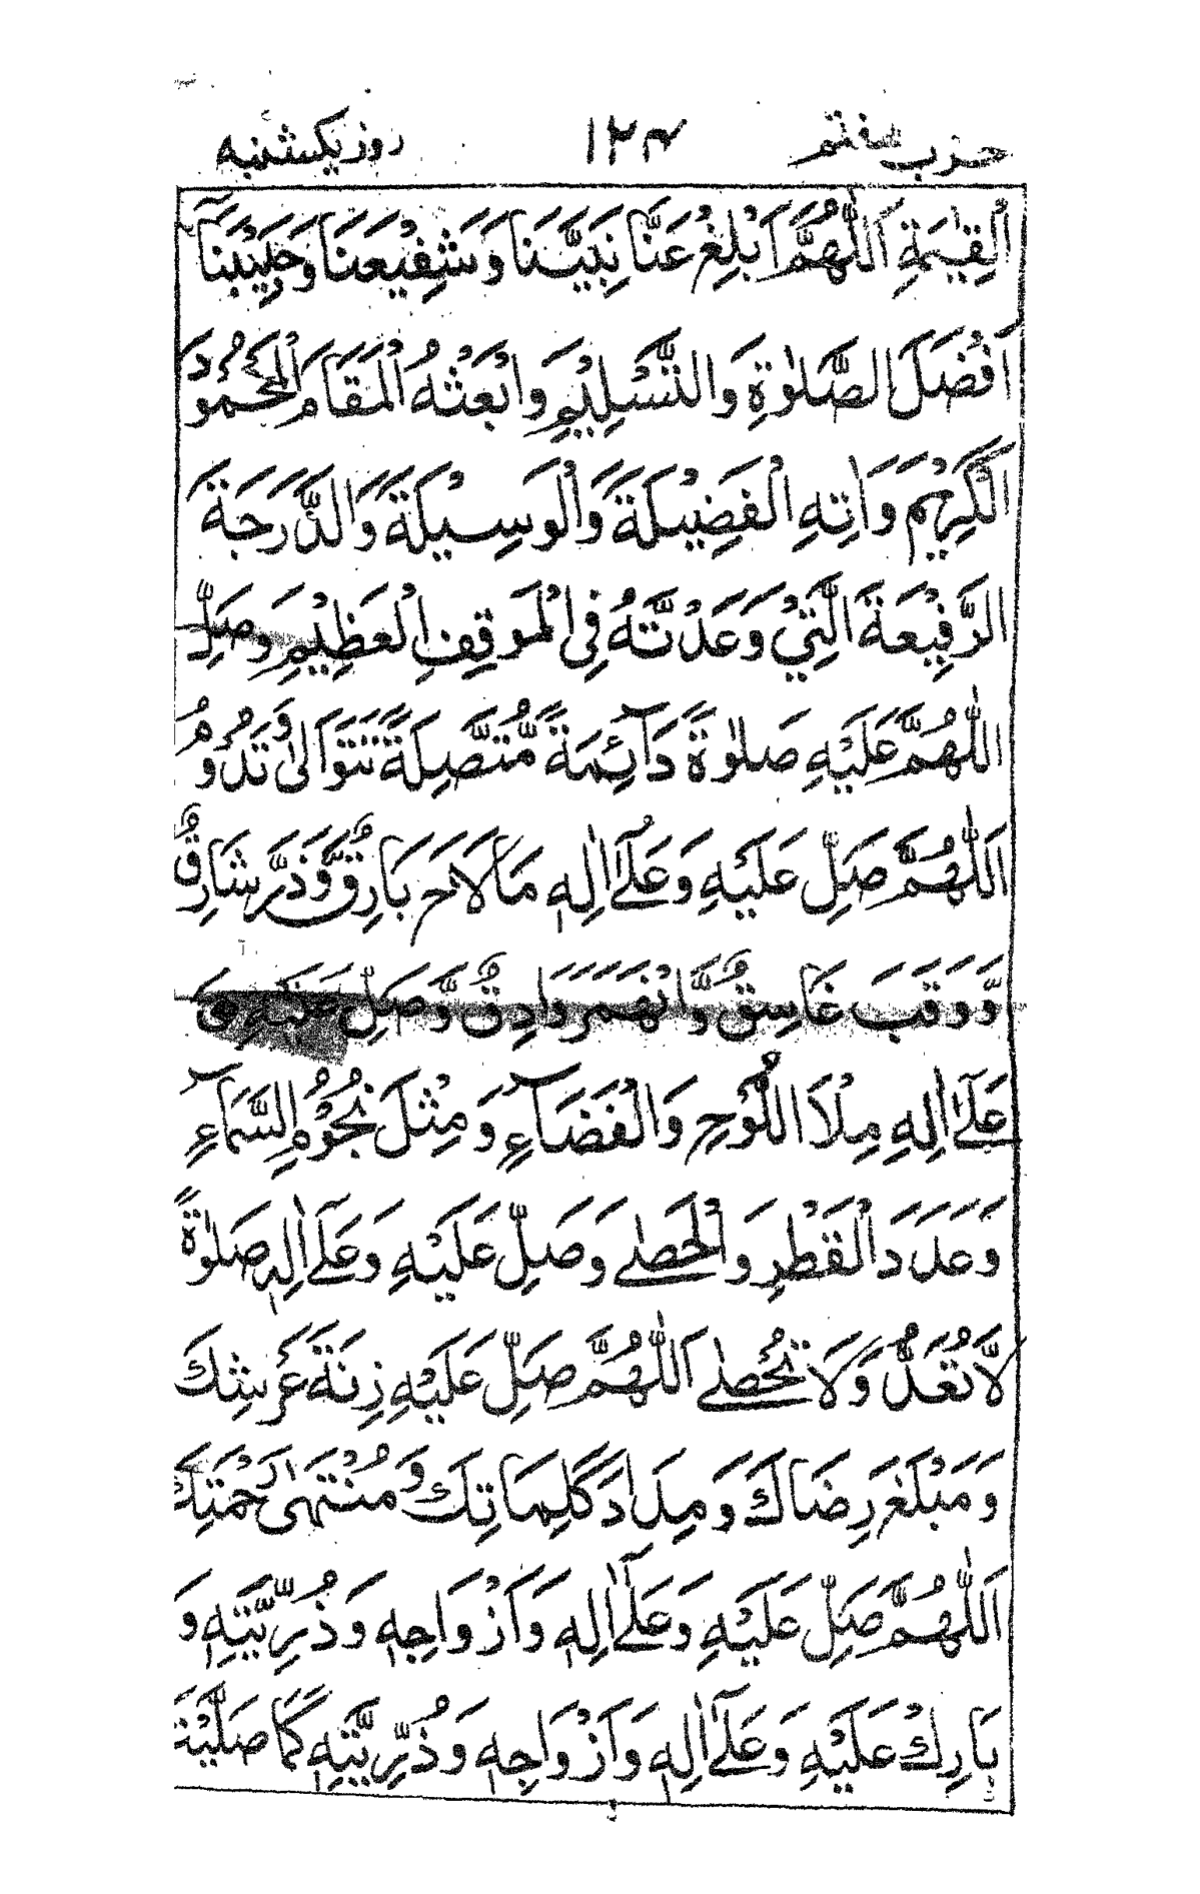 حزب هفتم ۱۲۴ روز یکشنبه
الْقِيٰمَةِ اَللّٰهُمَّ اَبْلِغْ عَنَّا نَبِيَّنَا وَشَفِيْعَنَا وَحَبِيْبَنَا
اَفْضَلَ الصَّلٰوةِ وَالتَّسْلِيْمِ وَابْعَثْهُ الْمَقَامَ الْمَحْمُوْدَ
الْكَرِيْمَ وَاٰتِهِ الْفَضِيْلَةَ وَالْوَسِيْلَةَ وَالدَّرَجَةَ
الرَّفِيْعَةَ الَّتِيْ وَعَدْتَّهُ فِى الْمَوْقِفِ الْعَظِيْمِ وَصَلِّ
اللّٰهُمَّ عَلَيْهِ صَلٰوةً دَآئِمَةً مُّتَّصِلَةً تَتَوَالٰى وَتَدُوْمُ
اَللّٰهُمَّ صَلِّ عَلَيْهِ وَعَلٰٓى اٰلِهٖ مَا لَاحَ بَارِقٌ وَّذَرَّ شَارِقٌ
وَّوَقَبَ غَاسِقٌ وَّانْهَمَرَ وَادِقٌ وَّصَلِّ عَلَيْهِ وَ
عَلٰٓى اٰلِهِ مِلْاَ اللَّوْحِ وَالْفَضَآءِ وَمِثْلَ نُجُوْمِ السَّمَآءِ
وَعَدَدَ الْقَطْرِ وَالْحَصٰى وَصَلِّ عَلَيْهِ وَعَلٰٓى اٰلِهٖ صَلٰوةً
لَّا تُعَدُّ وَلَا تُحْصٰى اَللّٰهُمَّ صَلِّ عَلَيْهِ زِنَةَ عَرْشِكَ
وَمَبْلَغَ رِضَاكَ وَمِدَادَ كَلِمَاتِكَ وَمُنْتَهٰى رَحْمَتِكَ
اَللّٰهُمَّ صَلِّ عَلَيْهِ وَعَلٰٓى اٰلِهٖ وَاَزْوَاجِهٖ وَذُرِّيَّتِهٖ وَ
بَارِكْ عَلَيْهِ وَعَلٰٓى اٰلِهٖ وَاَزْوَاجِهٖ وَذُرِّيَّتِهٖ كَمَا صَلَّيْتَ